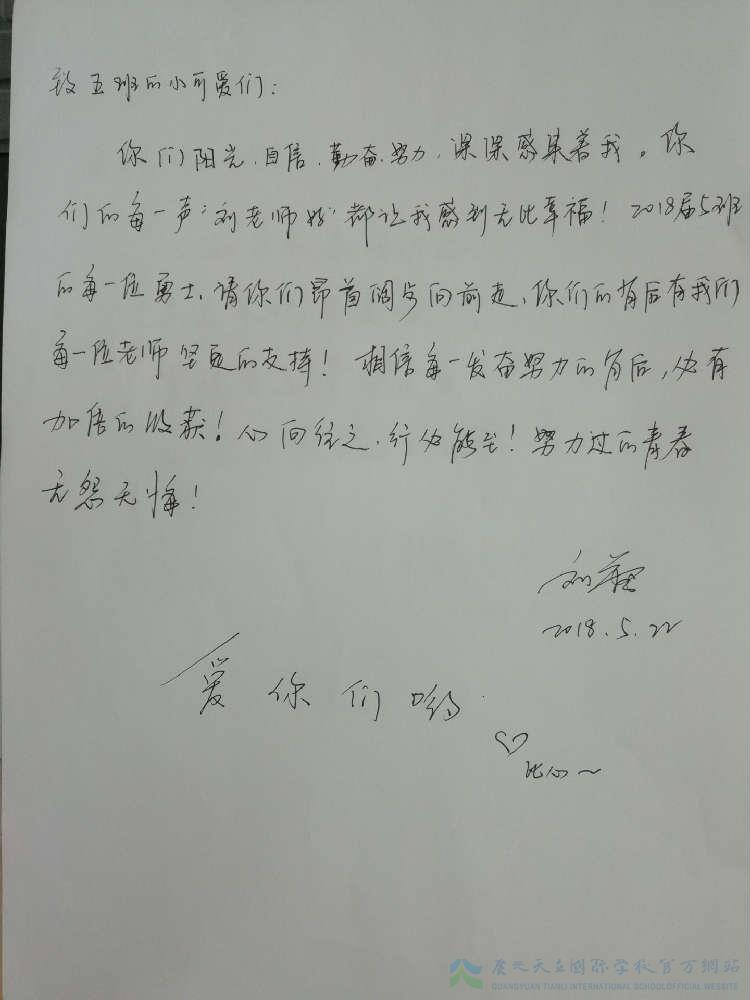 致五班的小可爱们：
你们阳光、自信、勤奋、努力，深深感染着我。你
们的每一声“刘老师好”都让我感到无比幸福！2018届5班
的每一位勇士，请你们昂首阔步向前走，你们的背后有我们
每一位老师坚定的支持！相信每一发奋努力的背后，必有
加倍的收获！心向往之，行必能至！努力过的青春
无怨无悔！
刘
2018.5.22
爱你们哟
♡
比心～
广元天立国际学校官方網站
GUANGYUAN TIANLI INTERNATIONAL SCHOOLOFFICIAL WEBSITE